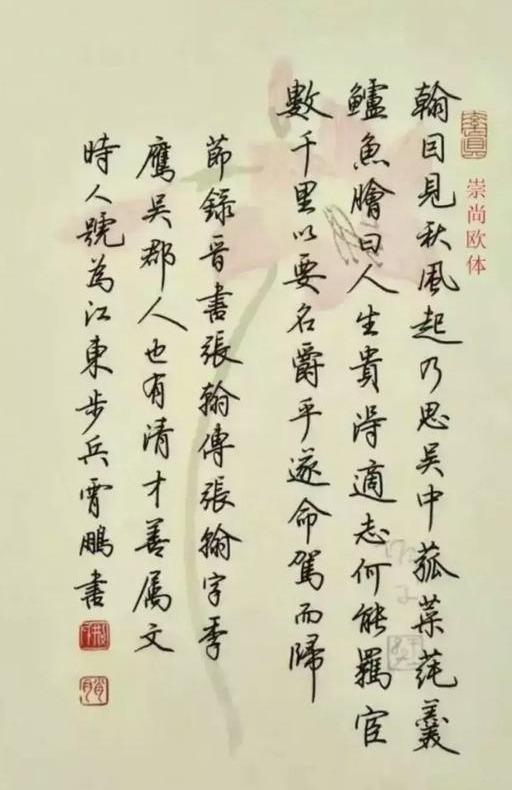 翰因見秋風起乃思吳中菰菜蓴羹
鱸魚膾曰人生貴得適志何能羈宦
數千里以要名爵乎遂命駕而歸
節錄晉書張翰傳張翰字季
鷹吳郡人也有清才善属文
時人號為江東步兵霄鵬書
崇尚欧体